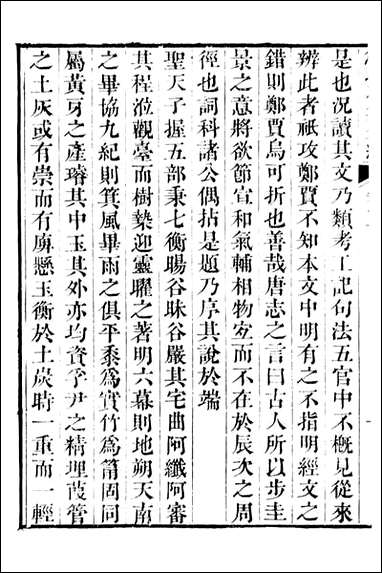 是也況讀其文乃類考工記句法五官中不概見從來
辨此者祇攻鄭賈不知本文中明有之不指明經文之
錯則鄭賈烏可折也善哉唐志之言曰古人所以步圭
景之意將欲節宣和氣輔相物宜而不在於辰次之周
徑也詞科諸公偶拈是題乃序其說於端
聖天子握五部秉七衡暘谷昧谷嚴其宅曲阿纖阿審
其程涖觀臺而樹埶迎靈曜之著明六幕則地朔天南
之畢協九紀則箕風畢雨之俱平黍為實竹為筩固同
屬黃牙之產璿其中玉其外亦均資孚尹之精埋葭管
之土灰或有祟而有庳懸玉衡於土炭時一重而一輕